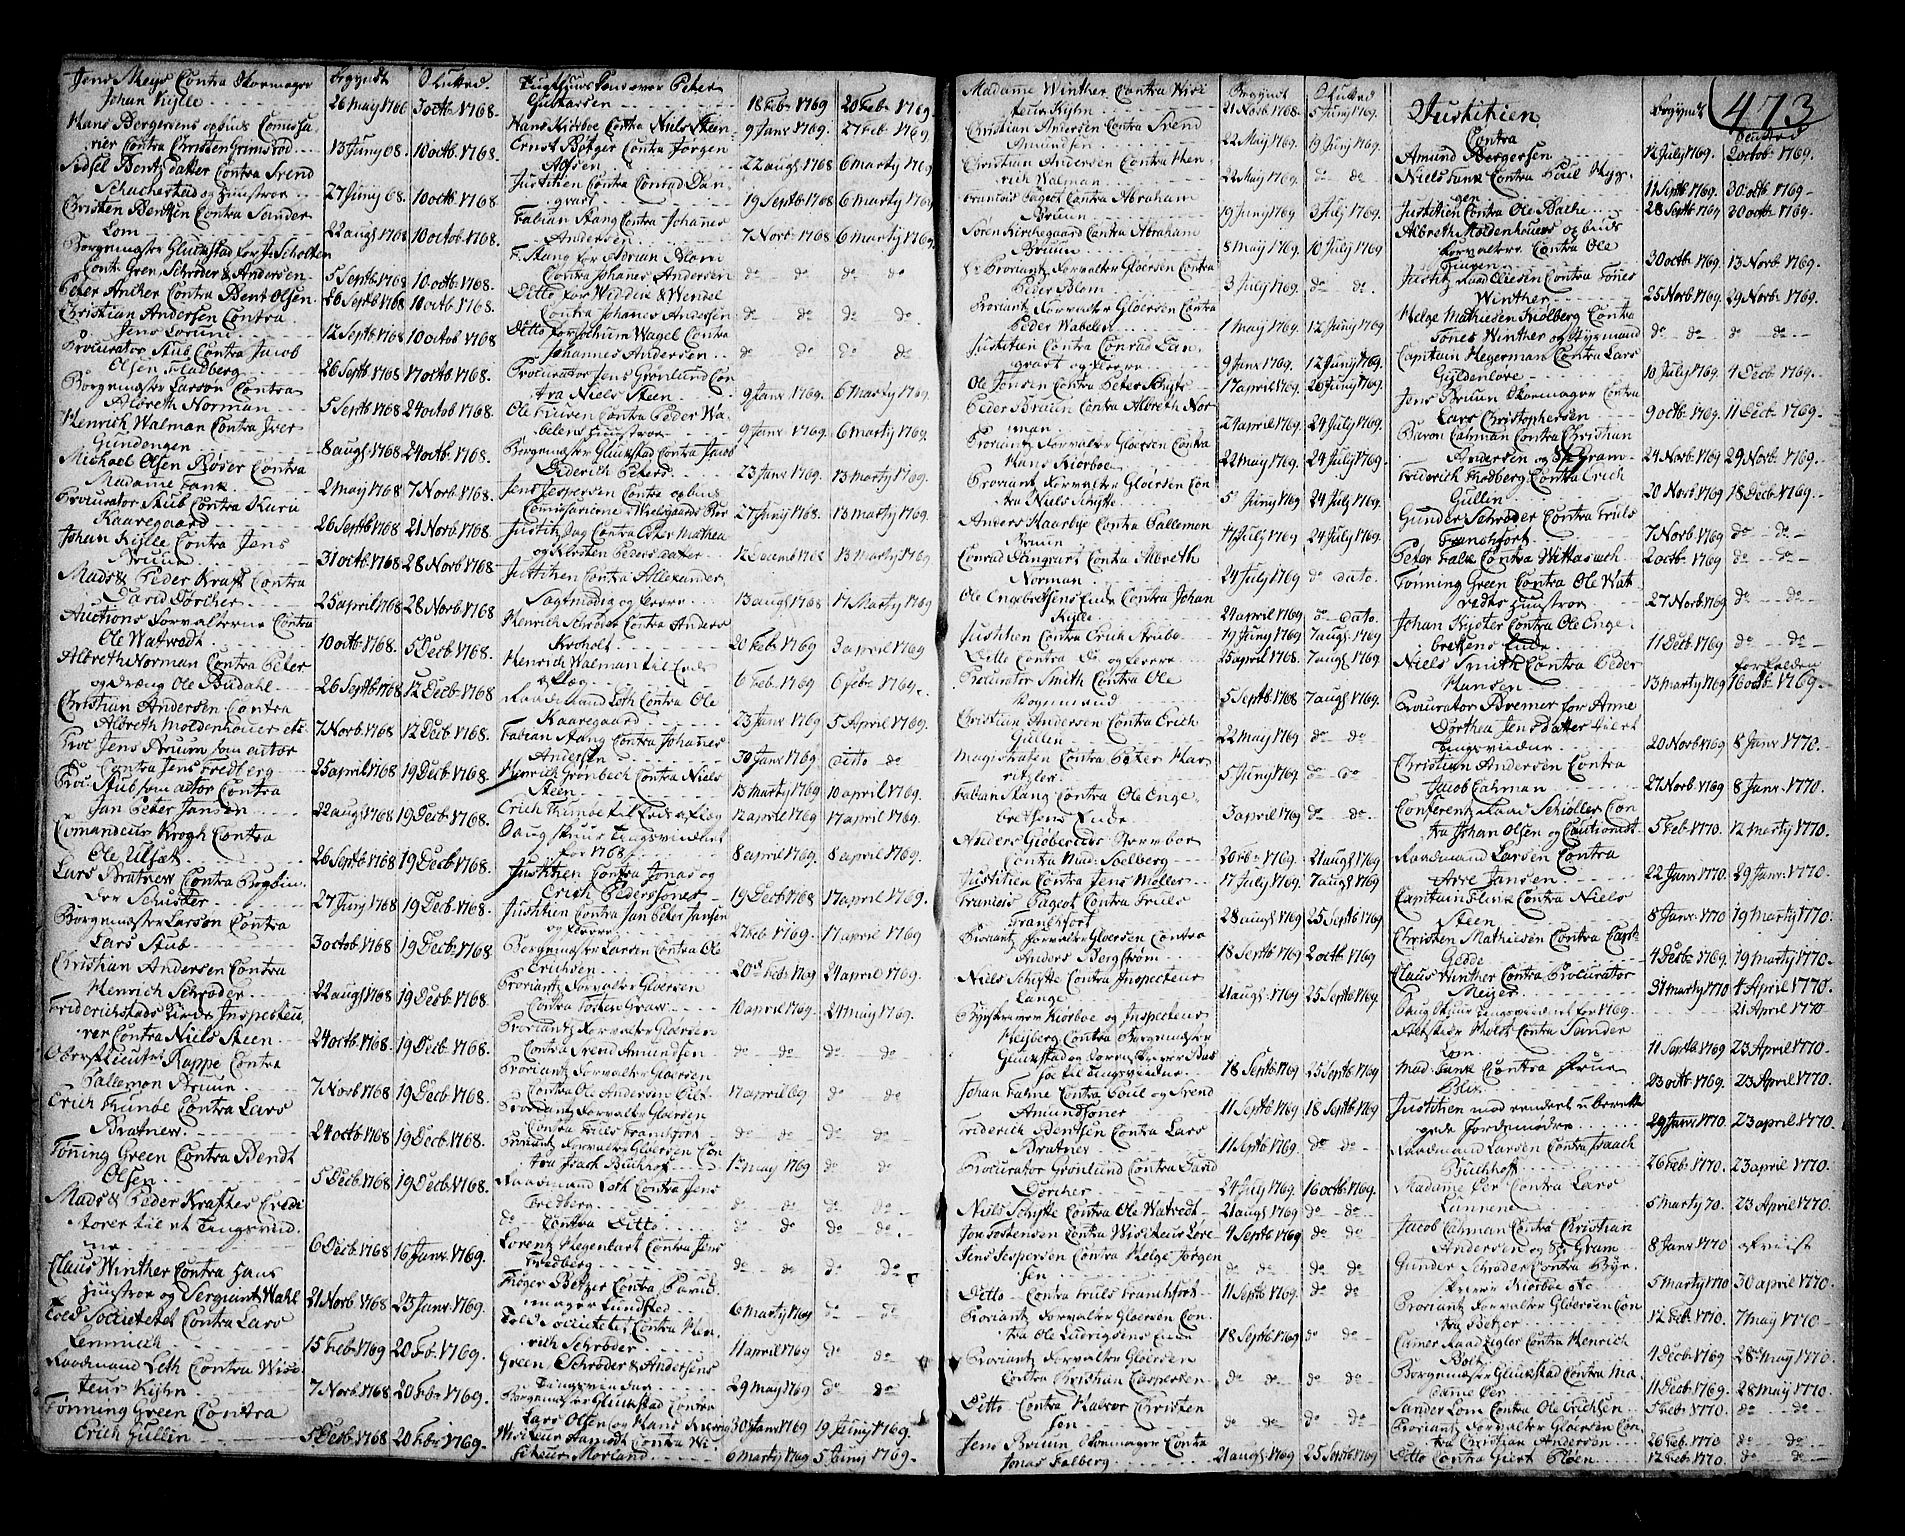 Jens Meyer Contra Skomager Begyndt Slutted
Johan Kylle 26 May 1766 3 octb. 1768.
Hans Bergersens opbuds Comissa-
rier Contra Christen Grimsrød 13 Juny 68. 10 octb. 1768.
Sidsel Bentzdatter Contra Svend
Schachestad og Hustroe 27 Juny 68 10 octb. 1768
Christen Bentsen Contra Sander
Lom 22 augt 1768 10 octob 1768
Borgemester Gluckstad for J: Scholten
Cont. Gren, Schrøder & Andersen 5 Septb 1768 10 octb. 1768.
Peter Ancher Contra Bent Olsen 26 Septb 1768 10 octb. 1768.
Christian Andersen Contra
Jens 12 Septb 1768 10 octob 1768
Procurator Stub Contra Jacob
Olsen Fladberg 26 Septb 1768 17 octb. 1768.
Borgemester Larson Contra
Albreth Norman 5 Septb 1768 24 octob 1768
Henrich Walman Contra Iver
Gundersen 8 augt 1768 24 octb. 1768.
Michael Olsen Røser Contra
Madame Fank 2 May 1768 7 Novb. 1768.
Procurator Stub Contra
Kaaregaard 26 Septb 1768 21 Novb. 1768
Johan Kylle Contra Jens
Bruun 31 octb 1768 28 Novb 1768
Mads & Peder Kraft Contra
David Dørcher 25 april 1768 28 Novb 1768
Auctions Forvalterne Contra
Ole Watvedt 10 octb 1768 5 Decb 1768.
Albreth Norman Contra Peter
og dræng Ole Budahl 26 Septb 1768 12 Decb 1768
Christian Andersen Contra
Albreth Moldenhouer etc 7 Novb. 1768 12 Decb 1768
Proc Jens Bruun som actor
Contra Jens Fredberg 25 april 1768 19 Decb 1768.
Proc Stub som actor Contra
Jan Peter Jansen 22 augt 1768 19 Decb 1768.
Comandeur Krogh Contra
Ole Ulfæt 26 Septb 1768 19 Decb 1768.
Lars Bratnew Contra Bogbin-
der Schuster 27 Juny 1768 19 Decb. 1768.
Borgemester Larson Contra
Lars Stub 3 octob 1768 19 Decb 1768.
Christian Andersen Contra
Henrich Schrøder 22 augt 1768 19 Decb 1768
Friderichstads Inspecteu-
rer Contra Niels Steen 24 octb 1768 19 Decb. 1768.
Oberstlieutnt Rappe Contra
Pallemon Bruun 7 Novb 1768 19 Decb 1768.
Erich Trunbe Contra Lars
Bratnew. 24 octb 1768 19 Decb 1768.
Tønning Green Contra Bendt
Olsen 5 Decb 1768 19 Decb 1768.
Mads & Peder Krafts Credi-
torer til et Tingsvid-
ne 6 Decb 1768 16 Janv. 1769.
Claus Winther Contra Hans
Hustroe og Sergiant Wahl 21 Novb 1768 23 Janv 1769.
Told Societetet Contra Lars
Lemmich 15 Feb 1769 20 Fb. 1769.
Raadmand Leth Contra Visi-
teur Kyhn 7 Novb. 1768 20 Feb 1769.
Tønning Green Contra
Erich Gullin 5 Decb 1768 20 Feb 1769.
Tugthuus Peter
Gustavsen 18 Feb 1769 20 Feb 1769
Hans Kiørboe Contra Niels Steen 9 Janv 1769. 27 Feb 1769
Ernst Betzer Contra Jørgen
Alfsen 22 augt 1768 6 marty 1769
Justitien Contra Conrad Dan-
gvart 19 Septb 1768 6 marty 1769
Fabian Stang Contra Johanes
Andersen 7 Novb 1768 6 marty 1769.
F. Stang for Adrian Blom
Contra Johanes Andersen do do do do
Ditto for Widdik & Wendel
Contra Johanes Andersen do do do do
Ditto for Jochum Wagel Contra
Johannes Andersen do do do do
Procurator Jens Grønlund Con-
tra Niels Steen 9 Janv 1769. 6 marty 1769.
Ole Contra Peder Wa-
belens Hustroe 9 Janv 1769. 6 marty 1769.
Borgemester Gluckstad Contra Jacob
Diderich Peters 23 Janv 1769. 13 marty 1769.
Jens Jespersen Contra opbuds
Comissarierne i Nielsgaards Boe 27 Juny 1768. 13 marty 1769.
Justitz Contra Peter Mathea
og Kirsten Pedersdatter 12 Decemb 1768 13 marty 1769
Justitien Contra Allexander
Sagtmodig og fleere 13 augt 1768 17 Marty 1769
Henrich Schrøder Contra Anders
Krokolt 20 Feb 1769 3 april 1769
Henrich Walman til Eeds
aflæg 6 Feb. 1769 6 Feb. 1769.
Raadmand Leth Contra Ole
Kaaregaard 23 Janv 1769 5 April 1769.
Fabian Stang Contra Johanes
Andersen 30 Janv 1769 ditto do
Hinrich Grønbech Contra Niels
Steen 13 marty 1769 10 april 1769.
Erich Trumbe til Eeds aflæg 12 april 1769 17 april 1769.
Tingsvidnet
for 1768 8 april 1769. 8 april 1769.
Justitien Contra Jonas og
Erich Pedersøner 19 Decb 1768 17 april 1769.
Justitien Contra Jan Peter Jansen
og fleere 27 Feb 1769. 17 april 1769
Borgemester Larsen Contra Ole
Erichsen 20 Feb 1769 24 april 1769.
Proviantz Forvalter Gloersen
Contra Torsten Graw 10 april 1769 24 may 1769.
Proviantz Forvalter Gloersen
Contra Svend Amundsen do do do do
Proviantz Forvalter Gloersen
Contra Ole Andersen 17 april 69. do do
Proviantz Forvalter Gloersen
Contra Truls Frankfort do do do do
Proviantz Forvalter Gloersen Con-
tra Isach Buchhof 1 may 1769 do do
Raadmand Leth Contra Jens
Fredberg do do do do
do Contra Ditto do do do do
Lorentz Hegenbart Contra Jens
Fredberg do do do do
Trøger Betzer Contra
mager Lundsted 6 marty 1769 do do
Told Societetet Contra Hen-
rich Schrøder 11 april 1769 do do
Green, Schrøder & Andersens
Tingsvidne 29 May 1769 do do
Borgemester Gluckstad Contra
Lars Olsen og Hans 30 Janv 1769 19 Juny 1769.
Visiteur Aamodt Contra Vi-
siteur Morland 6 Marty 1769 5 Juny 1769.
Madame Winther Contra Visi- Begyndt Sluttet
teur Kyhn 21 Novb. 1768. 5 Juny 1769.
Christian Andersen Contra Svend
Amundsen 22 May 1769. 19 Juny 1769.
Christian Andersen Contra Hen-
rich Walman 22 May 1769. do do
Frantois Pagot Contra Abraham
Bruun 19 Juny 1769. 3 July 1769.
Søren Kirchegaard Contra Abraham
Bruun 8 May 1769. 10 July 1769
Proviantz Forvalter Gloersen Contra
Peder Blom 3 July 1769. do do.
Proviantz Forvalter Gloersen Contra
Peder Wabelen 1 May 1769. 12 Juny 1769
Justitien Contra Conrad Dan-
gvart og fleere 9 Janv 1769. 12 Juny 1769.
Ole Jonsen Contra Peter Schytte 17 april 1769. 26 Juny 1769.
Peder Bruun Contra Albreth Nor-
man 24 april 1769. 24 July 1769.
Proviantz Forvalter Gloersen Contra
Hans Kiørboe 22 May 1769. 24 July 1769.
Proviantz Forvalter Gloersen Con-
tra Niels Schytte 5 Juny 1769 24 July 1769
Anders Haarbye Contra Pallemon
Bruun 17 July 1769 24 July 1769.
Conrad Dangvart Contra Albreth
Norman 24 July 1769. do dato.
Ole Engebretsens Enke Contra Johan
Kylle 24 april 1769 do dato.
Justitien Contra Erich Strube 19 Juny 1769 7 augt 1769.
Ditto Contra do og fleere 25 april 1768. 7 augt 1769.
Procurator Smith Contra Ole
5 Septb 1768 7 augt 1769.
Christian Andersen Contra Erich
Gullen 22 May 1769 do do
Contra Peter Mar-
ritzler 5 Juny 1769. do do
Fabian Stang Contra Ole Enge-
bretsens Enke 3 april 1769 do do
Anders
Contra Mad: Soelberg 20 Feb 1769. 21 augt 1769
Justitien Contra Jens Møller 17 July 1769. 7 augt 1769
Francois Pageot Contra Truls
Franchfort 28 augt 1769 25 Septb 1769.
Proviantz Forvalter Gloersen Contra
Anders Bergstrøm 18 Septb 1769 2 octb 1769.
Niels Schytte Contra Inspecteur
Lange 21 augt 1769. 25 Septb 1769.
Kiørboe og Inspecteur
Heyberg Contra Borgemester
Gluckstad og
til Tingsvidne 18 Septb 1769 25 Septb 1769.
Johan Falne Contra Poul og Svend
Amundsøner 11 Septb 1769 18 Septb 1769
Friderich Bentsen Contra Lars
Bratner 11 Septb 1769. do do
Procurator Grønlund Contra David
Dørcher 24 July 1769 16 octb 1769.
Niels Schytte Contra Ole Watvedt 21 augt 1769 do do
Jon Torstensen Contra 4 Septb 1769 do do
Jens Jespersen Contra Helge Jørgen-
sen do do do do
Ditto Contra Truls Franchfort 11 Septb 1769 do do
Proviantz Forvalter Gloersen Con-
tra Ole Ludvigsens Enke 18 Septb. 1769 do do
Proviantz Forvalter Gloersen
Contra Christian Caspersen do do do do
Ditto Contra Halvor Christen-
sen do do do do
Jens Bruun Skomager Contra
Jonas Falberg 21 augt 1769 25 Septb 1769
473
Justitien Begyndt Slutted
Contra
Amund Bergersen 12 July 1769. 2 octob. 1769.
Niels Fank Contra Poul Myg-
gen 11 Septb 1769. 30 octb 1769
Justitien Contra Ole Bache 28 Septb 1769 20 octb 1769.
Albreth Moldenhouers opbuds
Forvalter Contra Ole
30 octb 1769. 13 Novb. 1769.
Justitz Raad Eliesen Contra Tones
Winther 25 Novb 1769. 29 Novb. 1769.
Helge Mathiesen Kiølberg Contra
Tones Winther og Hysmand do do do do
Capitain Hegerman Contra Lars
Gyldenløve 10 July 1769 4 Decb 1769.
Jens Bruun Skomager Contra
Lars Christophersen 9 octb. 1769. 11 Decb. 1769.
Baron Calman Contra Christian
Andersen og Gram 24 Novb 1769. 29 Novb. 1769.
Friderich Fredberg Contra Erich
Gullin 20 Novb 1769 18 Decb 1769.
Gunder Schrøder Contra Truls
Franchfort 7 Novb 1769 do do
Peter Falk Contra Wittasach 2 octb 1769 do do
Tønning Green Contra Ole Wat-
vedts Hustroe 27 Novb 1769 do do
Johan Kyster Contra Ole Enge-
bretsens Enke 11 Decb 1769. do do
Niels Smith Contra Peder forfalden
Hansen 13 marty 1769 16 octb 1769.
Procurator Bremer for Anne
Dorthea Jensdatter
Tingsvidne 20 Novb 1769 8 Janv. 1770.
Christian Andersen Contra
Jacob Calman 27 Novb 1769. 8 Janv. 1770.
Conferentz Raad Schiøller Con-
tra Johan Olsen og Cautionist 5 Feb 1770. 12 marty 1770.
Raadmand Larsen Contra
Arve Jansen 22 Janv 1770. 29 Janv. 1770.
Capitain Flink Contra Niels
Steen 8 Janv. 1770 19 marty 1770.
Christen Mathiesen Contra Capt.
Gedde 4 Decb 1769. 19 marty 1770.
Claus Winther Contra Procurator
Meyer 31 marty 1770 4 April 1770.
Tingsvidnet for 1769. 21 April 1770
Holst Contra Sander
Lom 11 Septb 1769 23 April 1770.
Mad Fank Contra Frue
Blix 23 octb 1769. 23 April 1770.
Justitien
gede Jordemødre 29 Janv 1770 23 april 1770.
Raadmand Larsen Contra Isaach
Buchhoff 26 Feb 1770. 23 april 1770.
Madame Øer Contra Lars
Lunnene 5 marty 70. 23 April 1770.
Jacob Calman Contra Christian
Andersen og Gram 8 Janv 1770 afviist
Gunder Schrøder Contra Bye-
skriver Kiørboe etc 5 marty 1770 30 april 1770.
Proviantz Forvalter Gloersen Con-
tra Betzer 12 Feb 1770. 7 may 1770
Camer Raad Ziegler Contra Henrich
Bolt 4 Decb 1769 28 may 1770.
Borgemester Gluckstad Contra Ma-
dame Øer 11 Decb 1769. 28 may 1770
Sander Lom Contra Ole Erichsen 5 Feb 1770. do do
Proviantz Forvalter Gloersen Con-
tra Christian Andersen 26 Feb. 1770 do do
Ditto Contra Giert Fløen 12 Feb 1770. do do